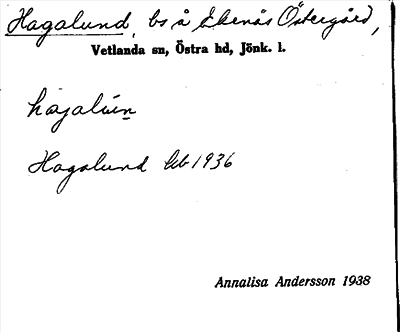 Hagalund, bs å Ekenäs Östergård,
Vetlanda sn, Östra hd, Jönk. l.
hagalún
Hagalund Gdb 1936
Annalisa Andersson 1938